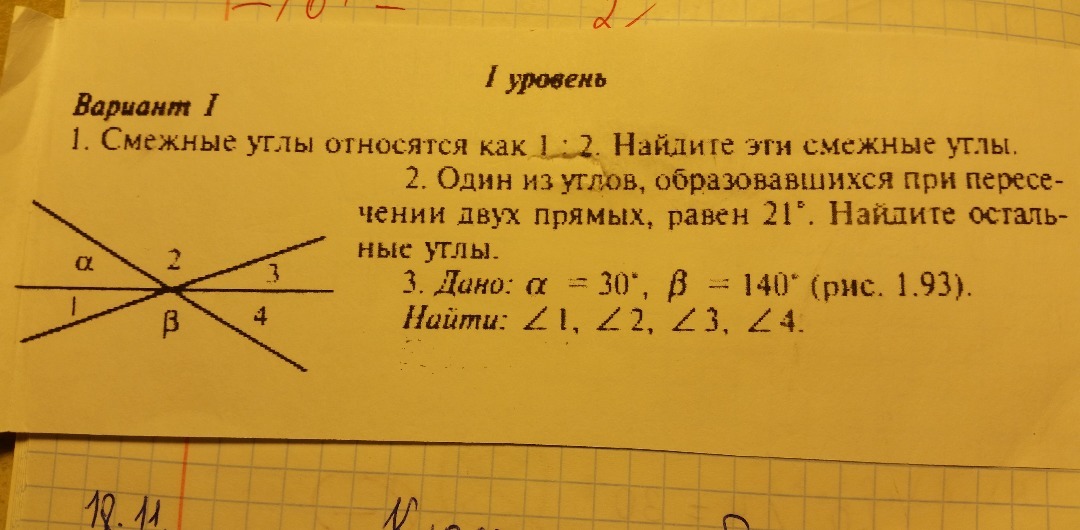 I уровень
Вариант I
1. Смежные углы относятся как 1 : 2. Найдите эти смежные углы.
2. Один из углов, образовавшихся при пересе-
чении двух прямых, равен 21°. Найдите осталь-
ные углы.
3. Дано: α = 30°, β = 140° (рис. 1.93).
Найти: ∠1, ∠2, ∠3, ∠4.
α 2 3
1 β 4
18.11.